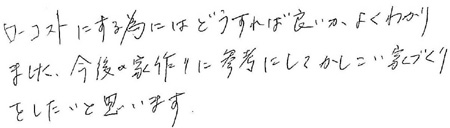 ローコストにする為にはどうすれば良いか、よくわかり
ました、今後の家作りに参考にしてかしこい家づくり
をしたいと思います.